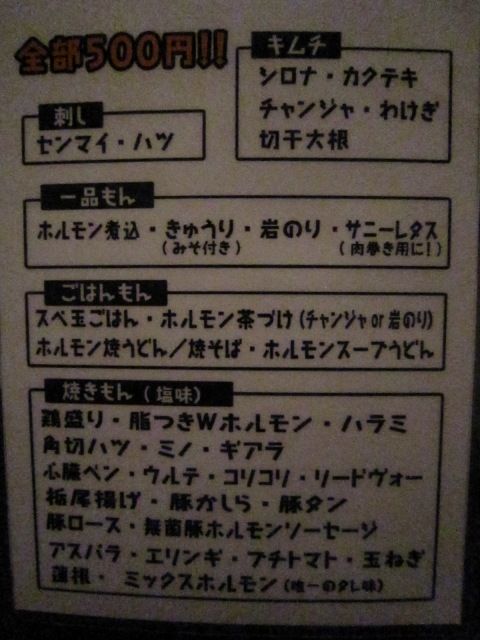 全部500円!!
キムチ
シロナ・カクテキ
チャンジャ・わけぎ
切干大根
刺し
センマイ・ハツ
一品もん
ホルモン煮込・きゅうり・岩のり・サニーレタス
(みそ付き) (肉巻き用に!)
ごはんもん
スペ玉ごはん・ホルモン茶づけ(チャンジャor岩のり)
ホルモン焼うどん/焼そば・ホルモンスープうどん
焼きもん(塩味)
鶏盛り・脂つきWホルモン・ハラミ
角切ハツ・ミノ・ギアラ
心臓ペン・ウルテ・コリコリ・リードヴォー
栃尾揚げ・豚かしら・豚タン
豚ロース・無菌豚ホルモンソーセージ
アスパラ・エリンギ・プチトマト・玉ねぎ
蓮根・ミックスホルモン(唯一のタレ味)